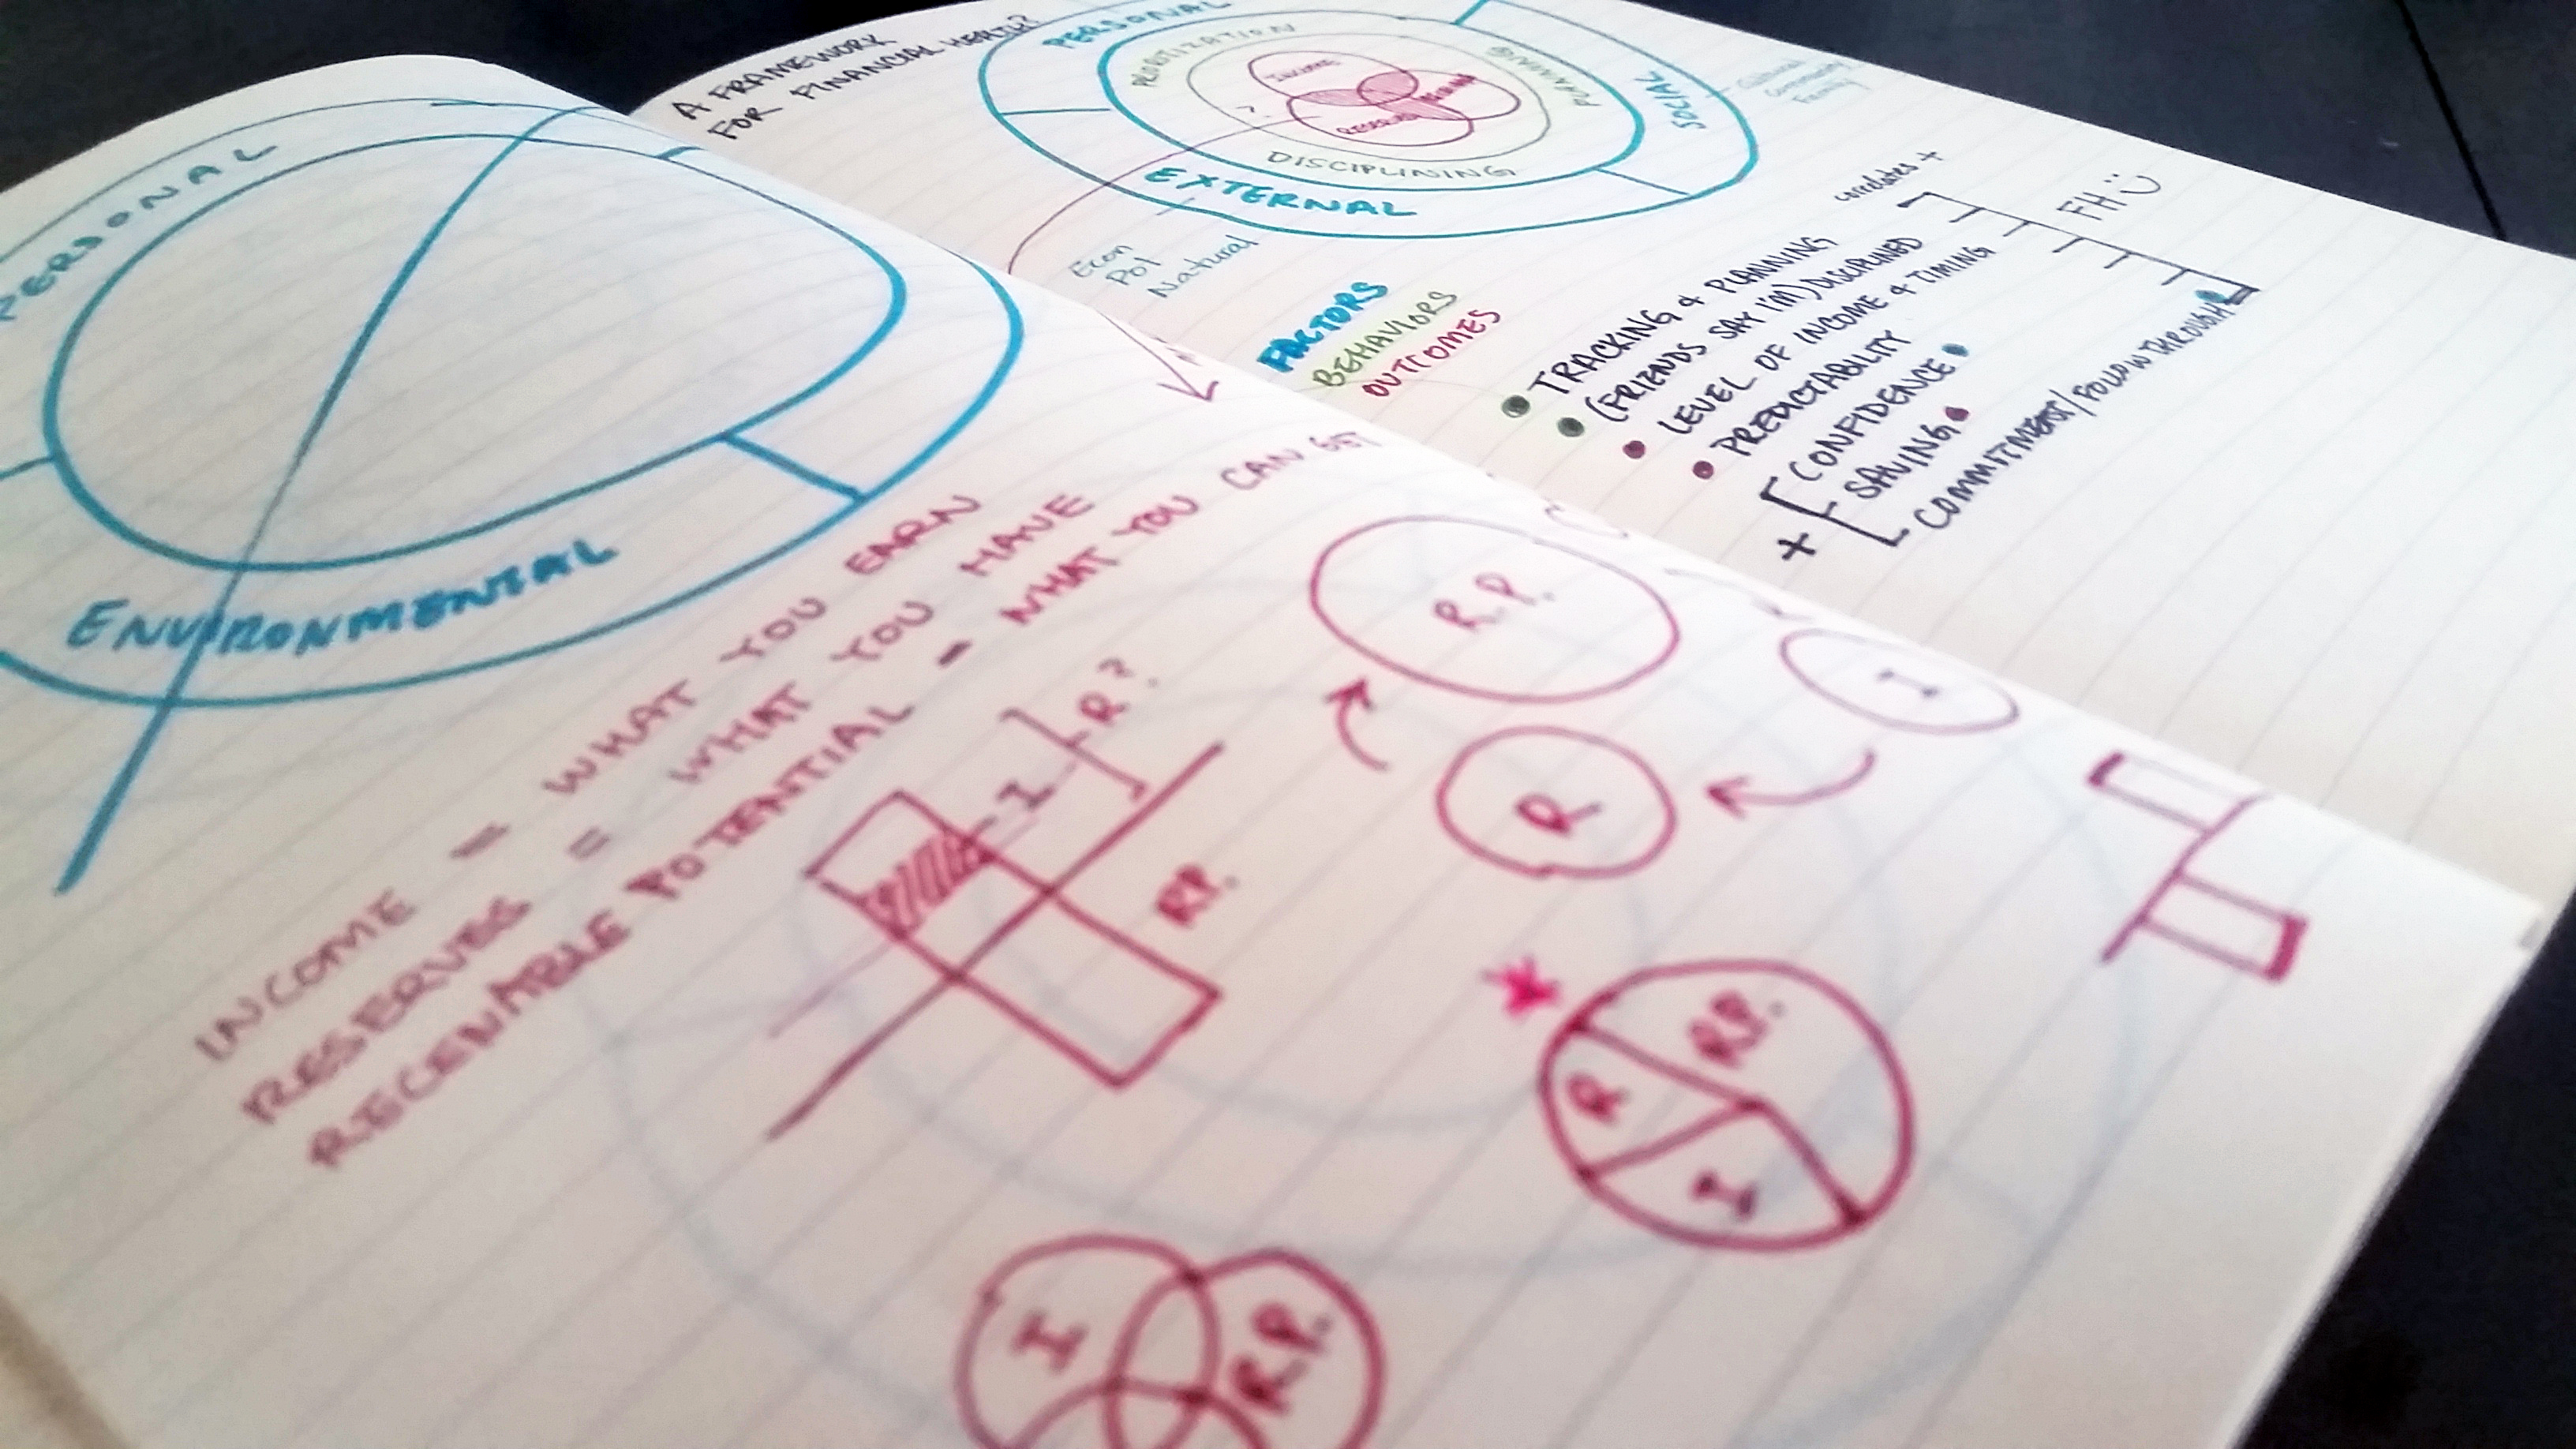 PERSONAL
ENVIRONMENTAL
INCOME = WHAT YOU EARN
RESERVES = WHAT YOU HAVE
REGENABLE POTENTIAL = WHAT YOU CAN GET
I
R?
R.P.
R.P.
R
I
R.P.
R
I
I
R.P.
A FRAMEWORK
FOR FINANCIAL HEALTH?
PERSONAL
SOCIAL
EXTERNAL
PLANNING
DISCIPLINING
INCOME
RESERVES
?
Cultural
Community
Family
Econ
Pol
Natural
FACTORS
BEHAVIORS
OUTCOMES
correlates +
FH
• TRACKING & PLANNING
• (FRIENDS SAY I'M) DISCIPLINED
• LEVEL OF INCOME & TIMING
• PREDICTABILITY
+ CONFIDENCE
SAVING
COMMITMENT/FOLLOW THROUGH